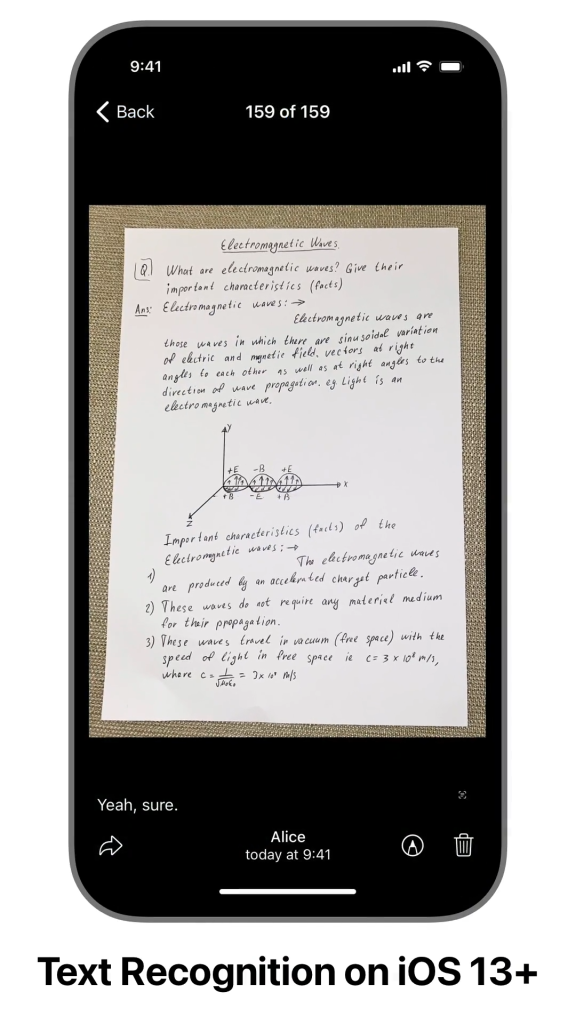 9:41
Back
159 of 159
Electromagnetic Waves
Q What are electromagnetic waves? Give their
important characteristics (facts)
Ans: Electromagnetic waves:→
Electromagnetic waves are
those waves in which there are sinusoidal variation
of electric and magnetic field. vectors at right
angles to each other as well as at right angles to the
direction of wave propagation. eg Light is an
electromagnetic wave.
y
+E -B +E
x
+B -E +B
z
Important characteristics (facts) of the
Electromagnetic waves:→
1) The electromagnetic waves
are produced by an accelerated charget particle.
2) These waves do not require any material medium
for their propagation.
3) These waves travel in vacuum (free space) with the
speed of light in free space ie c= 3 x 10⁸ m/s,
where c = 1/√μ₀ε₀ = 3x 10⁸ m/s
Yeah, sure.
Alice
today at 9:41
Text Recognition on iOS 13+